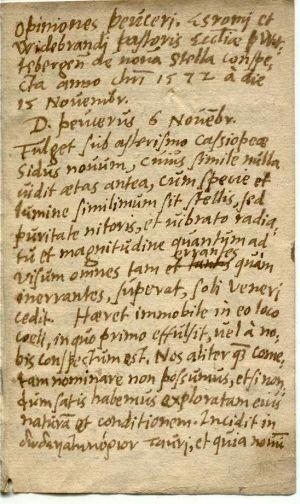 Opiniones peuceri. Esromi et
Widebrandi pastoris Ecclīæ Vit-
tebergen de noua Stella conspe-
cta anno chrī 1572 a die
15 Nouembr.
D. peucerus 6 Nouēbr.
Fulget sub asterismo Cassiopeæ
Sidus nouum, cuius simile nulla
uidit ætas antea, cum specie et
lumine simillimum sit stellis, sed
puritate nitoris, et uibrato radia-
tu et magnitudine quantum ad
errantes
uisum omnes tam et quàm
inerrantes, superat, soli Veneri
cedit. Hæret immobile in eo loco
coeli, in quo primo effulsit, uel à no-
bis conspectum est. Nos aliter qᷓ come-
tam nominare non possumus, etsi non-
dum satis habemus exploratam eius
naturā et conditionem. Incidit in
Tauri, et quia nouū